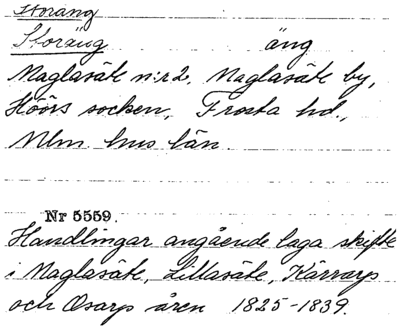 Storäng
Storäng äng
Maglasäte n:r 2, Maglasäte by,
Höörs socken, Frosta hd.,
Mlm hus län.
Nr 5559.
Handlingar angående laga skifte
i Maglasäte, Lillasäte, Kärrarp
och Osarp åren 1825-1839.